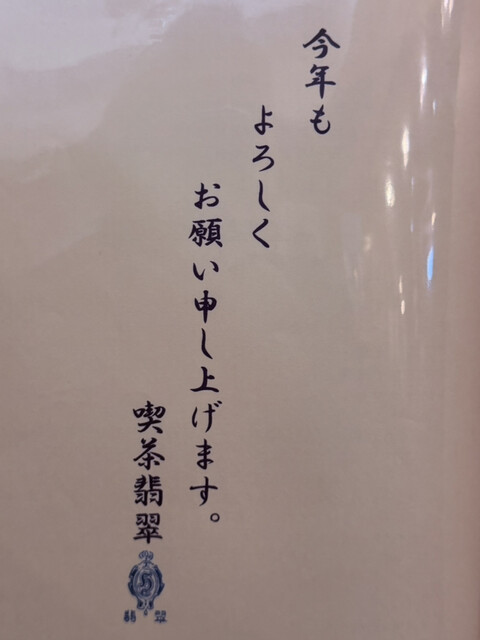 今年も
よろしく
お願い申し上げます。
喫茶翡翠
翡翠